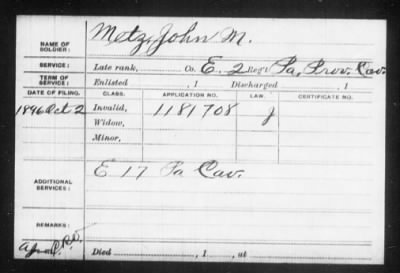 NAME OF SOLDIER: Metz, John M.
SERVICE: Late rank, Co. E. 2 Reg't Pa. Prov. Cav.
TERM OF SERVICE: Enlisted , 1 Discharged , 1
DATE OF FILING. CLASS. APPLICATION NO. LAW. CERTIFICATE NO.
1896 Oct 2 Invalid, 1181708 J
Widow,
Minor,
ADDITIONAL SERVICES: E 17 Pa Cav.
REMARKS:
Died , 1 , at